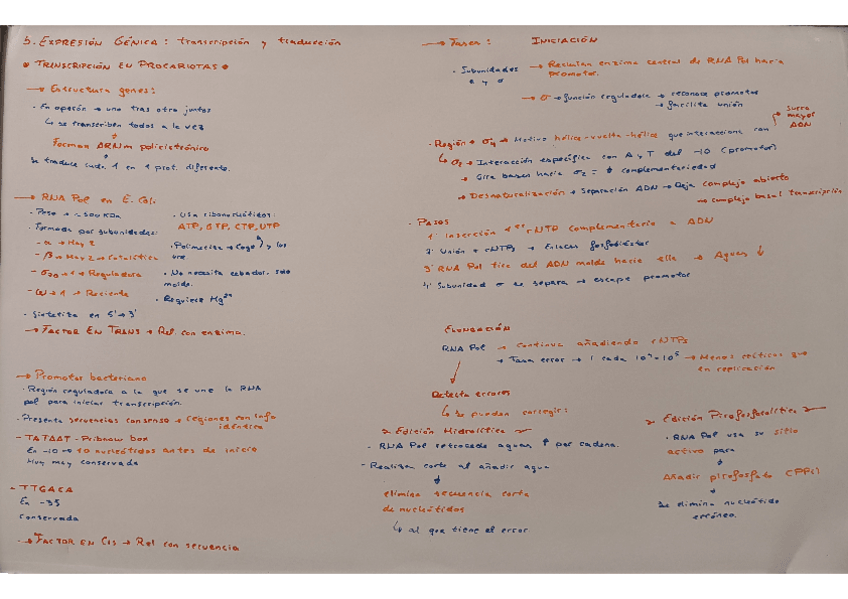 5. EXPRESIÓN GÉNICA: transcripción y traducción
• TRANSCRIPCIÓN EN PROCARIOTAS •
→ Estructura genes:
· En operón → uno tras otro juntos
↳ se transcriben todos a la vez
Forman ARNm policistrónico
Se traduce cada 1 en 1 prot. diferente.
→ RNA Pol en E. Coli.
· Peso →
· Formada por subunidades:
- α → Hay 2
- β → Hay 2 → Catalítica
- σ70 → 1 → Reguladora
- ω → 1 → Reciente
· Sintetiza en 5'→3'
→ FACTOR EN TRANS → Rel. con enzima.
· Usa ribonucleótidos:
ATP, GTP, CTP, UTP
· Polimeriza → Coge y los
une
· No necesita cebador. solo
molde.
· Requiere Mg2+
→ Promotor bacteriano
· Región reguladora a la que se une la RNA
pol para iniciar transcripción.
· Presenta secuencias consenso → regiones con info
idéntica
- TATAAT - Pribnow box
En -10 → 10 nucleótidos antes de inicio
Muy muy conservada
- TTGACA
En -35
Conservada
· → FACTOR EN CIS → Rel con secuencia
→ Fases: INICIACIÓN
· Subunidades
α y σ
→ Reclutan enzima central de RNA Pol hacia
promotor.
→ σ → función reguladora → reconoce promotor
→ facilita unión
· Región → σ4 → Motivo hélice-vuelta-hélice que interacciona con
Surco
mayor
ADN
↳ σ2 → Interacción específica con A y T del -10 (promotor)
→ Gira bases hacia σ2 = complementariedad
→ Desnaturalización → Separación ADN → Deja complejo abierto
→ complejo basal transcripción
· PASOS
1' Inserción 1er rNTP complementario a ADN
2' Unión rNTPs → Enlaces fosfodiéster
3' RNA Pol tira del ADN molde hacia ella → Aguas ↓
4' Subunidad σ se separa → escape promotor
ELONGACIÓN
RNA Pol → Continua añadiendo rNTPs
→ Tasa error → 1 cada 10⁴-10⁵ → Menos críticos que
en replicación
Detecta errores
↳ Se pueden corregir:
Edición Hidrolítica
- RNA Pol retrocede aguas ↑ por cadena.
- Realizan corte al añadir agua
elimina secuencia corta
de nucleótidos
↳ al que tiene el error
Edición Pirofosforolítica
· RNA Pol usa su sitio
activo para
Añadir pirofosfato (PPi)
Se elimina nucleótido
erróneo.